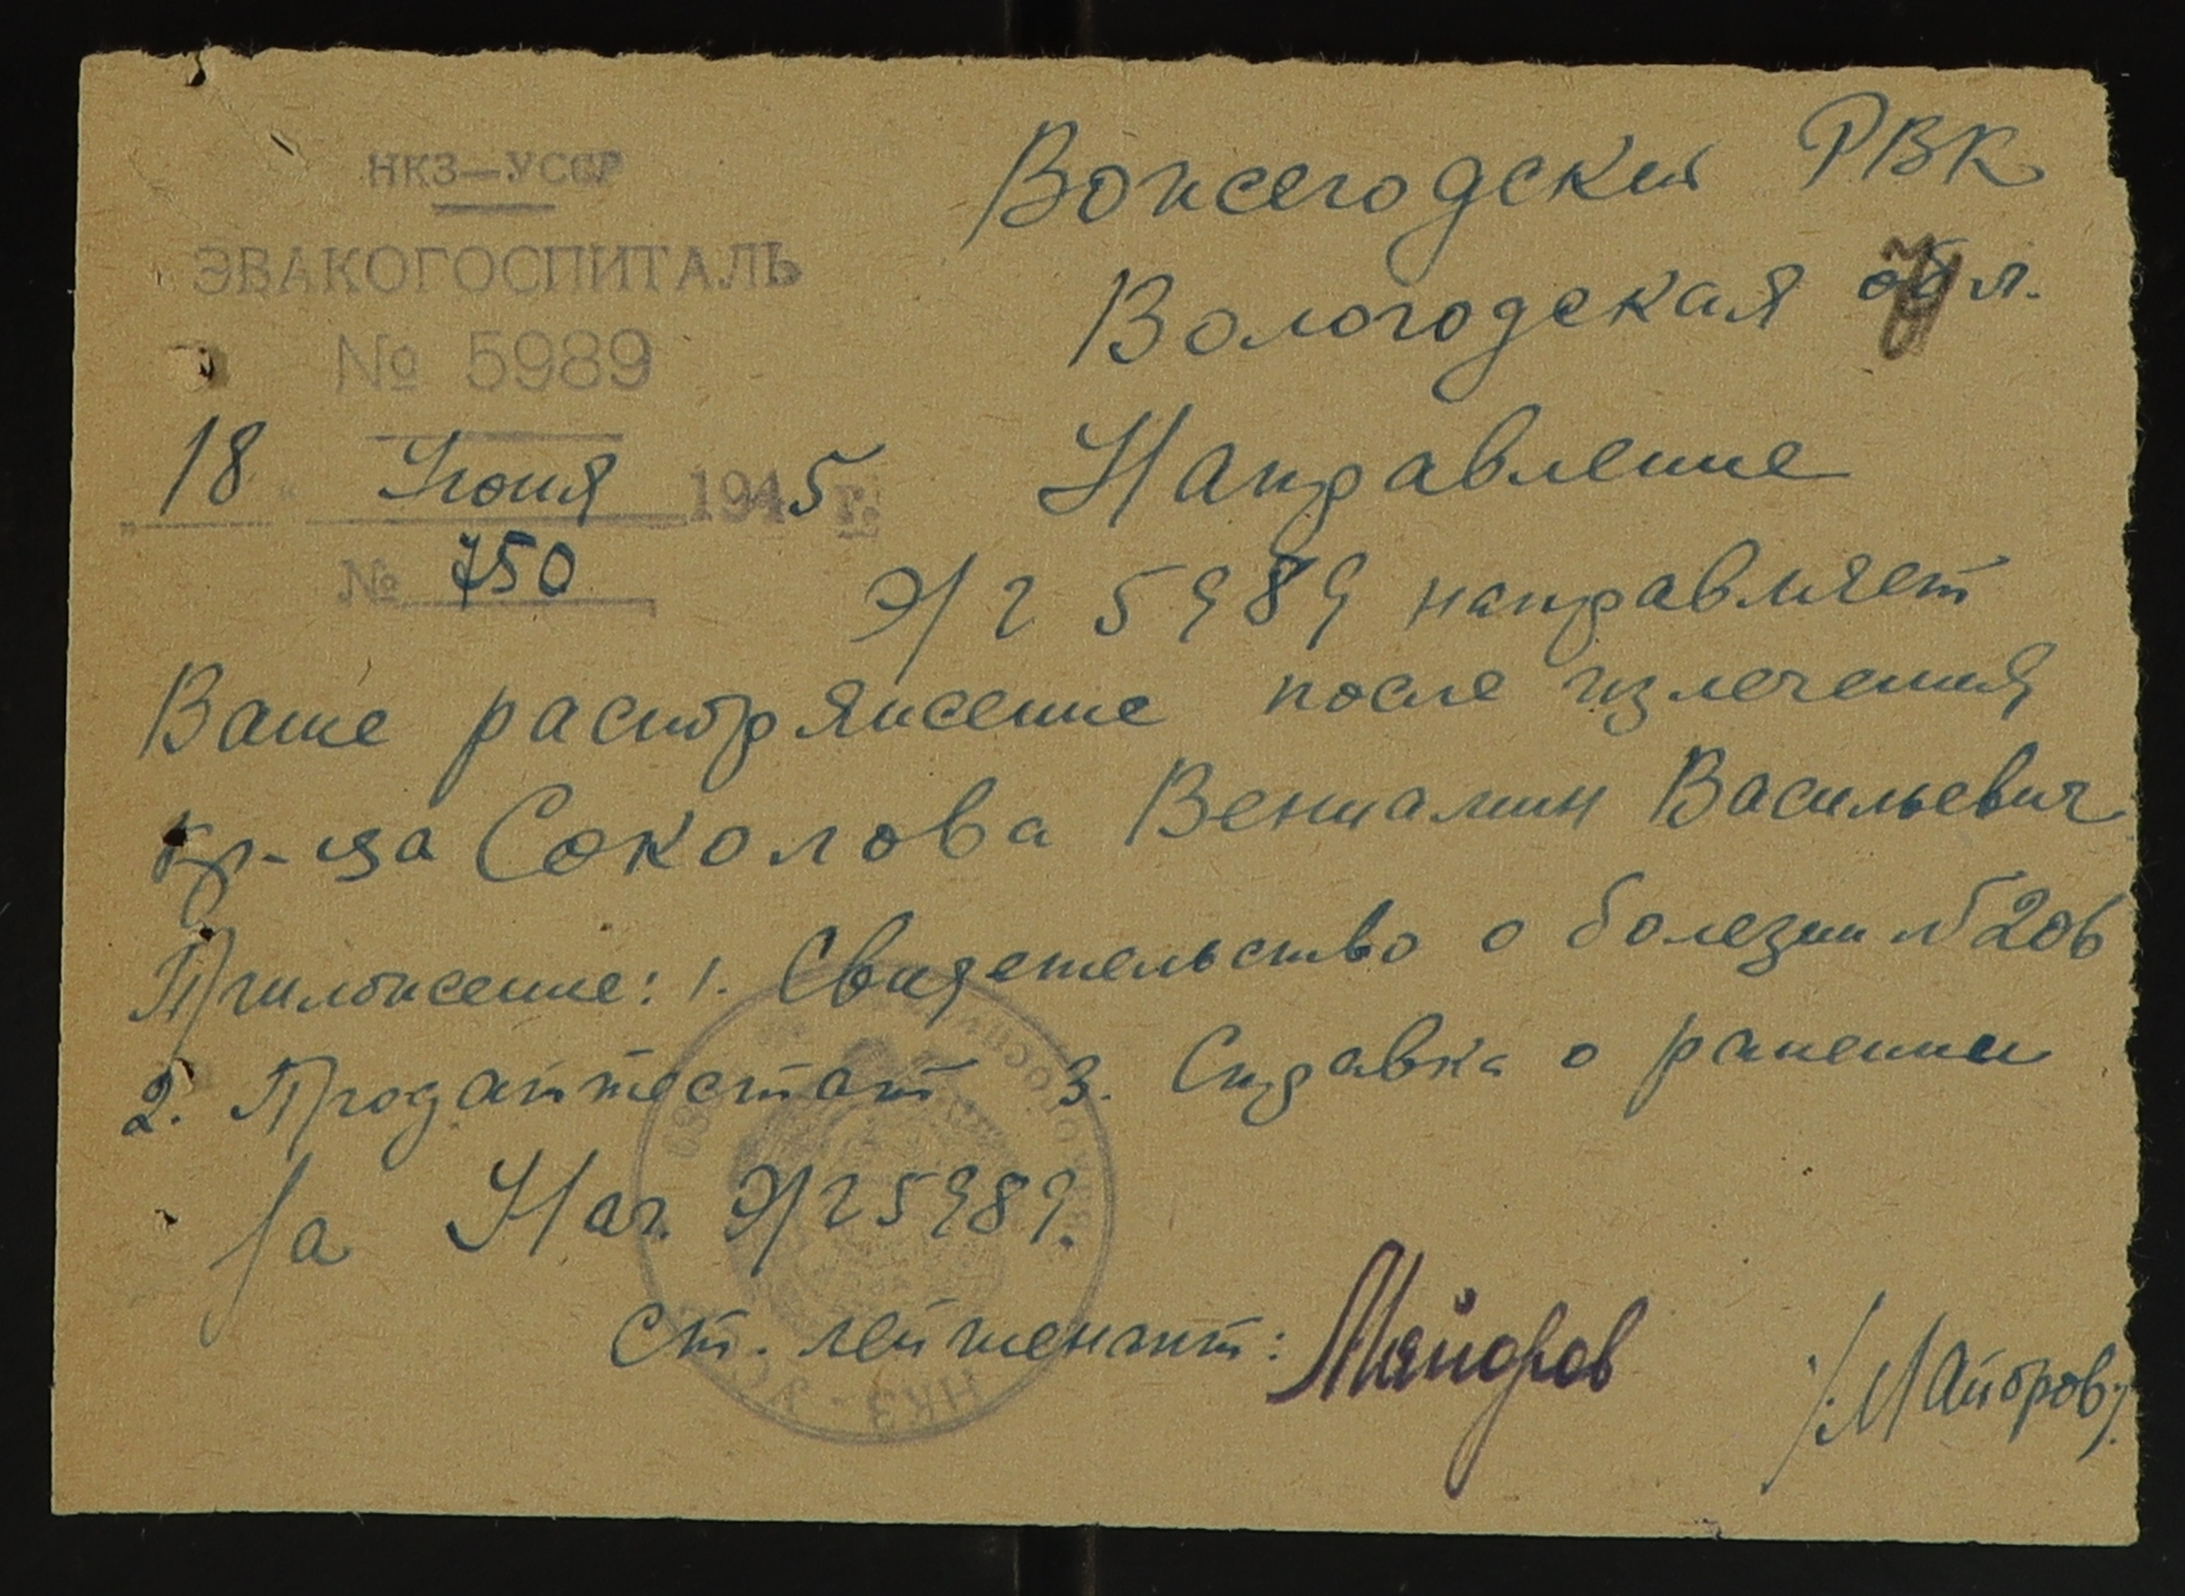 НКЗ—УССР
ЭВАКОГОСПИТАЛЬ
№ 5989
18 Июня 1945 г.
№ 750
Вожегодский РВК
Вологодская обл.
Направление
Э/Г 5989 направляет
Ваше распоряжение после излечения
кр-ца Соколова Вениамин Васильевич
Приложение: 1. Свидетельство о болезни № 206
2. Продаттестат 3. Справка о ранении
Нач. Э/Г 5989.
ст. лейтенант: Майоров /Майоров/.
НКЗ - УССР